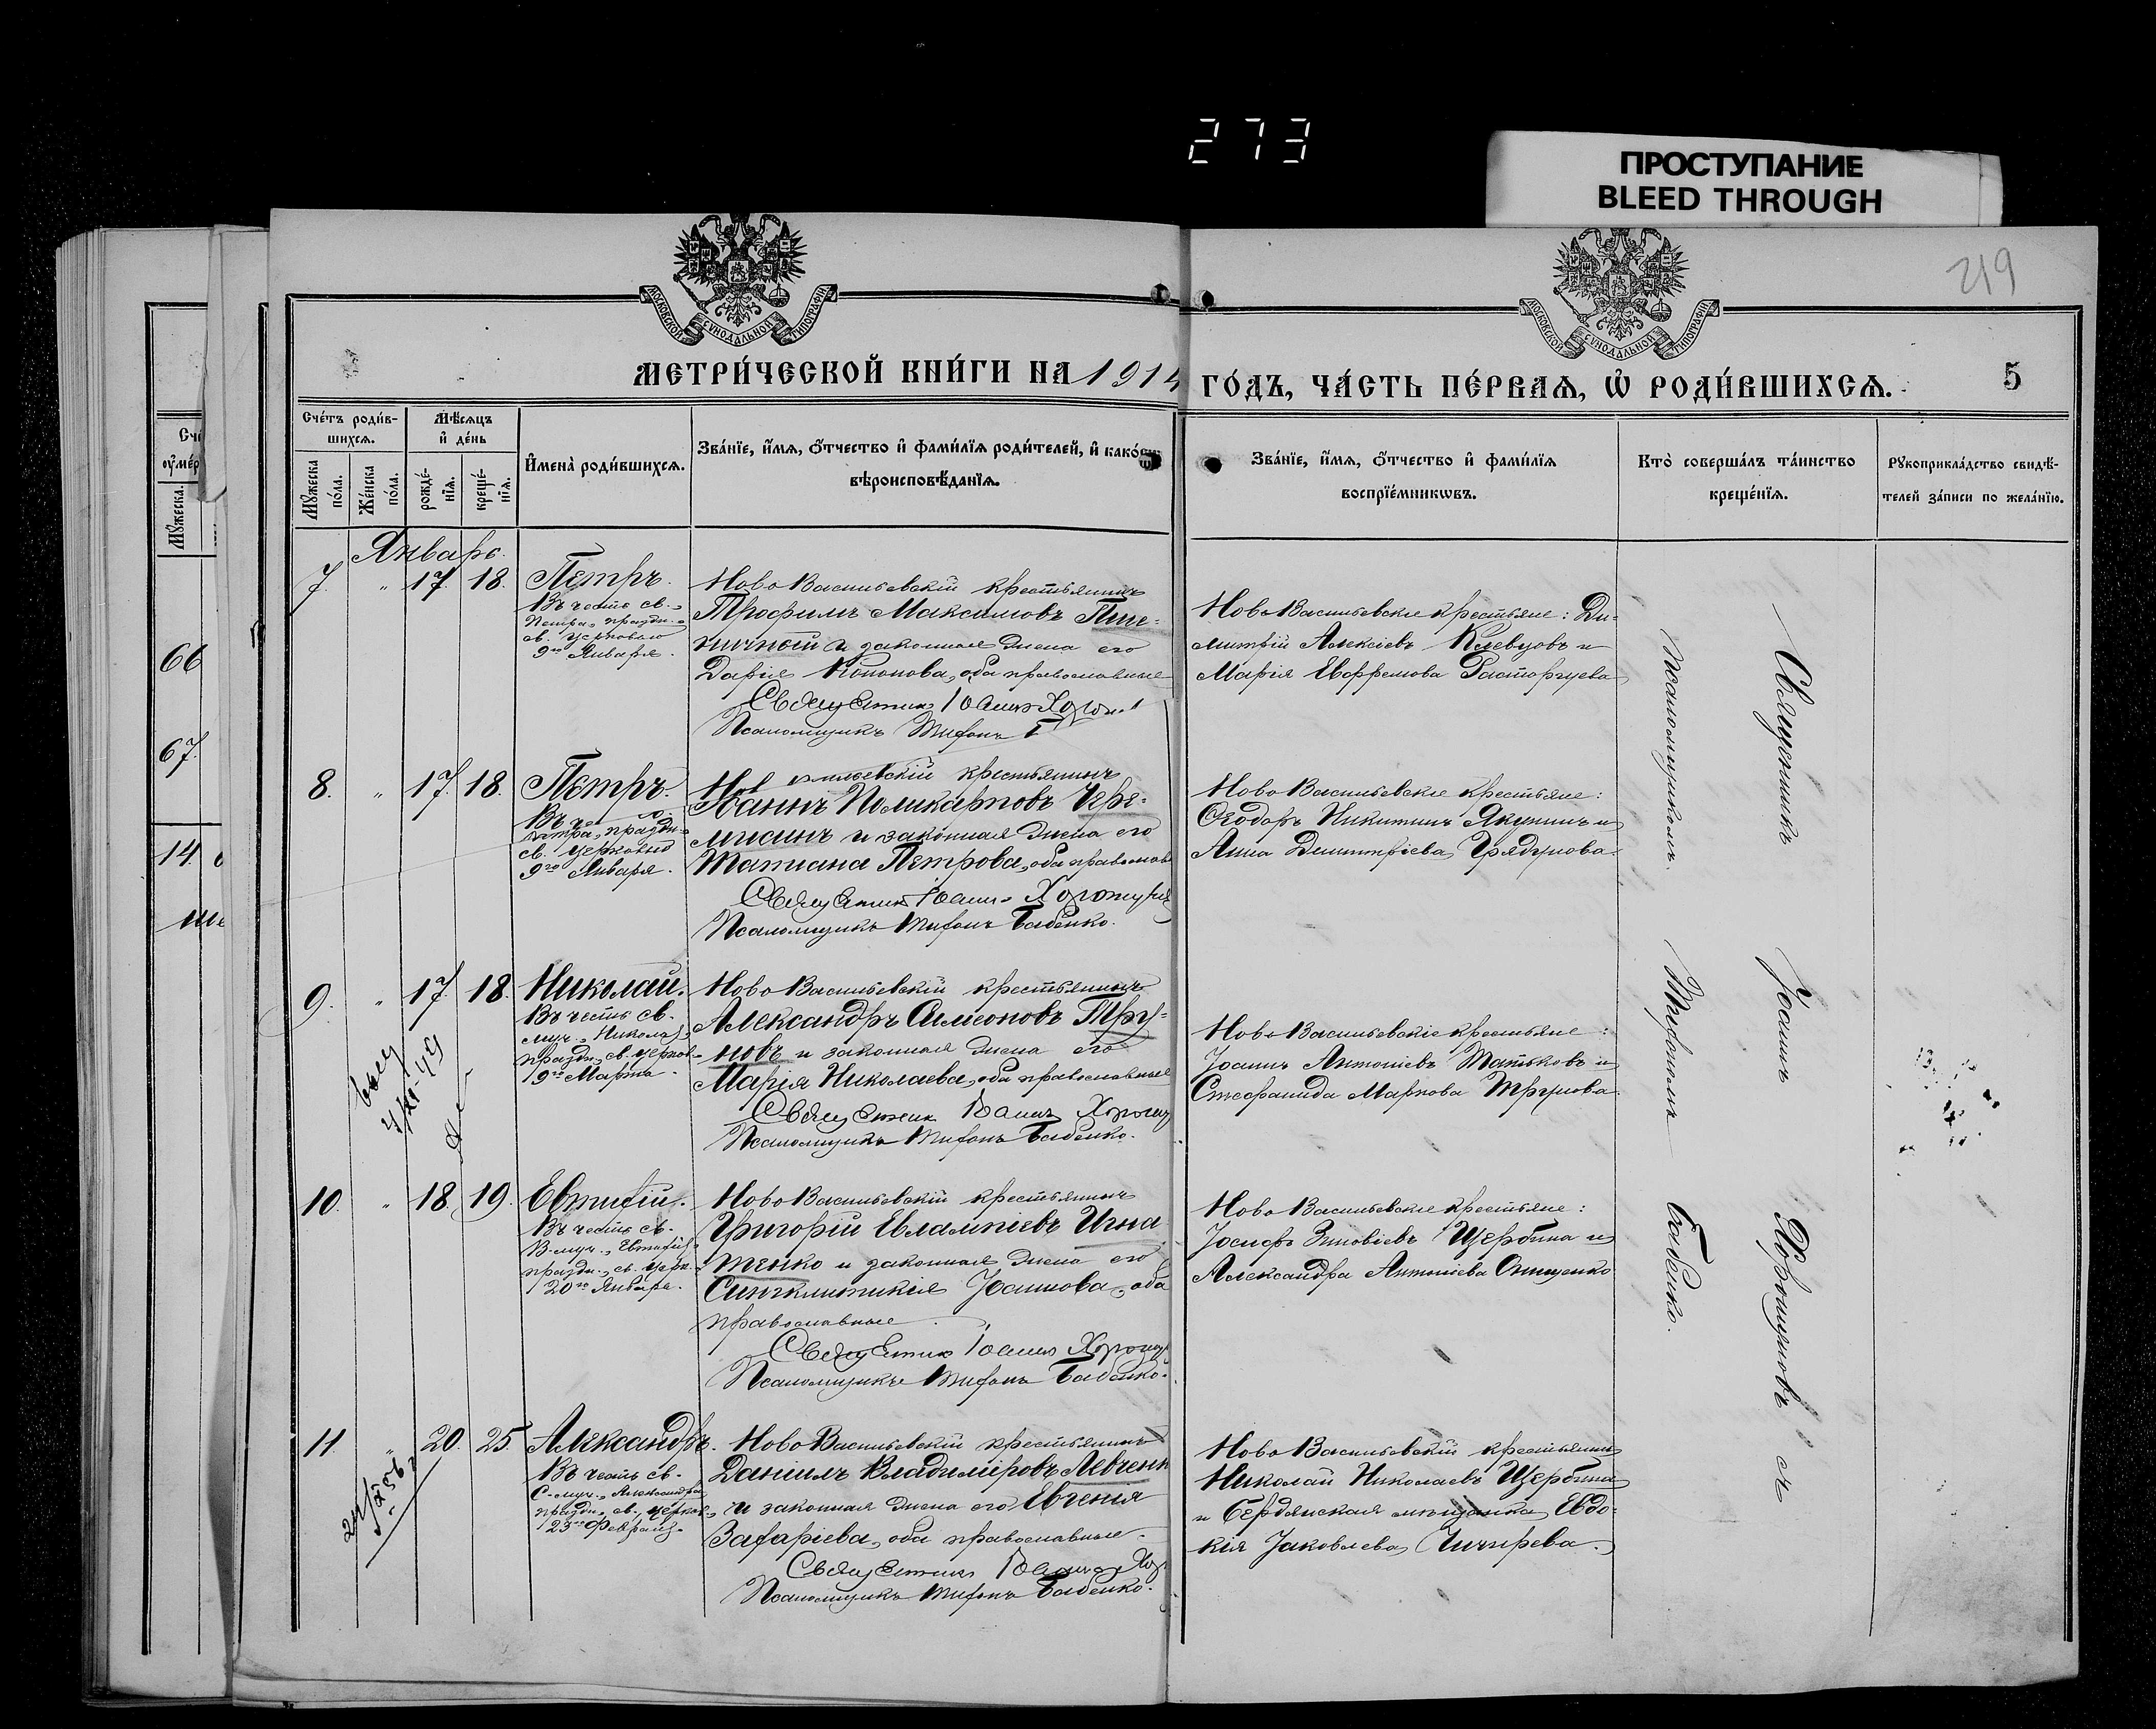 273
ПРОСТУПАНИЕ
BLEED THROUGH
219
МОСКОВСКОЙ СѴНОДАЛЬНОЙ ТИПОГРАФІИ
МОСКОВСКОЙ СѴНОДАЛЬНОЙ ТИПОГРАФІИ
МЕТРИ́ЧЕСКОЙ КНИ́ГИ НА 1914 ГО́ДЪ, ЧА́СТЬ ПЕ́РВАѦ, Ѡ҆ РОДИ́ВШИХСѦ.
5
Сче́тъ роди́в-
шихсѧ.
Мѣ́сѧцъ
и҆ де́нь
Мꙋ́жеска
по́ла.
Же́нска
по́ла.
рожде́-
нїѧ.
креще́-
нїѧ.
И҆мена̀ роди́вшихсѧ.
Зва́нїе, и҆́мѧ, ѻ҆́тчество и҆ фами́лїѧ роди́телей, и҆ како́гѡ
вѣроисповѣ́данїѧ.
Зва́нїе, и҆́мѧ, ѻ҆́тчество и҆ фами́лїѧ
воспрїе́мникѡвъ.
Кто̀ соверша́лъ та́инство
креще́нїѧ.
Рꙋкоприкла́дство свидѣ́-
телей за́писи по жела́нїю.
66
67.
14
Январь.
7. " 17. 18. Петръ.
Въ честь св.
Петра, праздн.
св. церковью
9го Января.
Ново Васильевскій крестьянинъ
Трофимъ Максимовъ Пше-
ничный и законная жена его
Дарія Кононова, оба православные
Священник Іоанн
Псаломщикъ Трифонъ
Ново Васильевскіе крестьяне: Ди-
митрій Алексіевъ Клевцовъ и
Марія Евфремова Расторгуева
8. " 17. 18. Петръ.
Петра, праздн.
св. церковью
9го Января.
крестьянинъ
Іоаннъ Поликарповъ Чере-
мисинъ и законная жена его
Татиана Петрова, оба православ
Священник Іоанн
Псаломщикъ Трифонъ Бабенко.
Ново Васильевскіе крестьяне:
Ѳеодоръ Никитинъ Якунинъ и
Анна Димитріева Грядунова.
9. " 17. 18. Николай.
Въ честь св.
муч. Николая,
праздн. св. церков.
9го Марта.
Ново Васильевскій крестьянинъ
Александръ Симеоновъ Тру-
новъ и законная жена его
Марія Николаева, оба православные
Священник Іоанн
Псаломщикъ Трифонъ Бабенко.
Ново Васильевскіе крестьяне:
Іоаннъ Антоніевъ Татьковъ и
Стефанида Маркова Трунова.
10. " 18. 19. Евтихій.
Въ честь св.
20го Января.
Ново Васильевскій крестьянинъ
Григорій Евлампіевъ Игна
тенко и законная жена его
Синклитикія Іоаннова, оба
православные.
Священник Іоанн
Псаломщикъ Трифонъ Бабенко.
Ново Васильевскіе крестьяне:
Іосифъ Зиновіевъ Щербина и
Александра Антоніева Онищенко
11. " 20. 25. Александръ.
Въ честь св.
праздн. св. церков.
23го Февраля.
Ново Васильевскій крестьянинъ
Даніилъ Владиміровъ Левченк
и законная жена его Евгенія
Захаріева, оба православные.
Священник Іоанн
Псаломщикъ Трифонъ Бабенко.
Ново Васильевскій крестьянинъ
Николай Николаевъ Щербина
и Бердянская мѣщанка Евдо-
кія Іаковлева Чичирева.
Священникъ Іоаннъ Хорошуновъ съ
псаломщикомъ Трифономъ Бабенко.